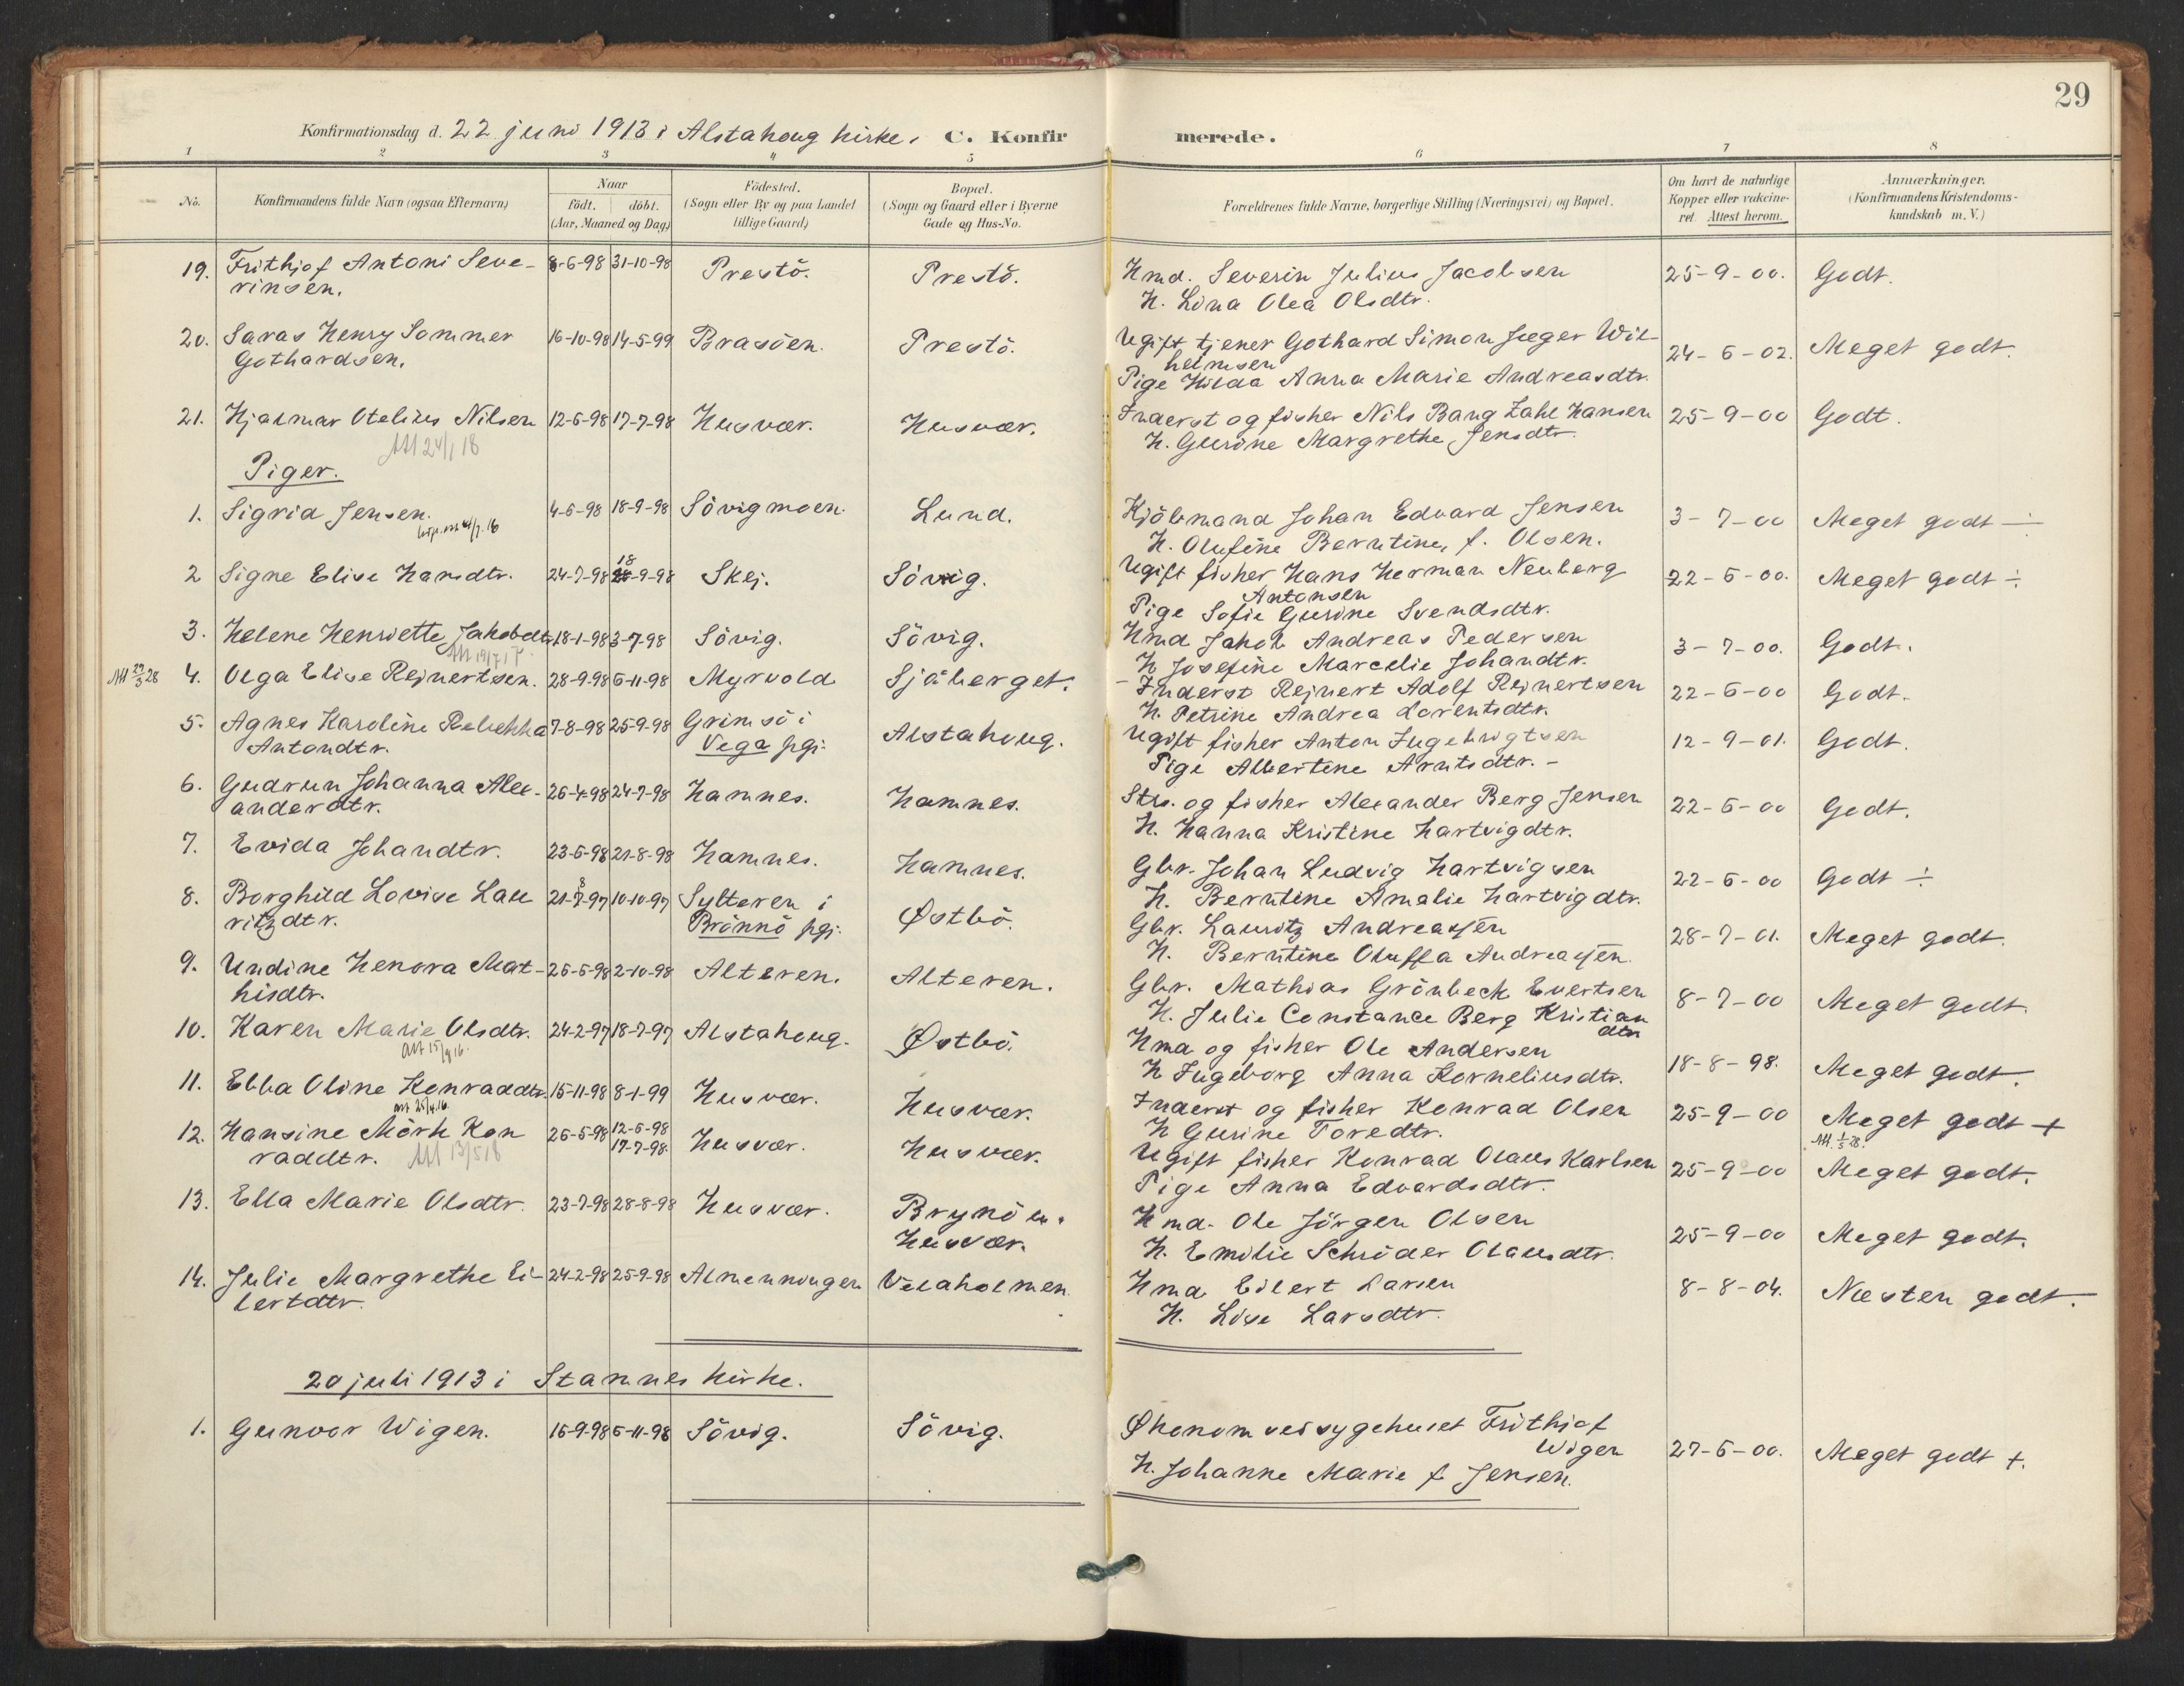 29
Konfirmationsdag d. 22 juni 1913 i Alstahoug kirke. C. Konfirmerede.
1 2 3 4 5 6 7 8
No. Konfirmandens fulde Navn (ogsaa Efternavn) Naar födt. döbt. (Aar, Maaned og Dag) Födested. (Sogn eller By og paa Landet tillige Gaard) Bopæl. (Sogn og Gaard eller i Byerne Gade og Hus-No. Forældrenes fulde Navne, borgerlige Stilling (Næringsvei) og Bopæl. Om havt de naturlige Kopper eller vakcineret. Attest herom. Anmærkninger. (Konfirmandens Kristendomskundskab m. V.)
19. Frithjof Antoni Seve- 8-6-98 31-10-98 Prestö. Prestö. Kmd. Severin Julius Jacobsen 25-9-00. Godt.
rinsen. H. Lina Olea Olsdtr.
20. Saras Henry Sommer 16-10-98 14-5-99 Brasöen. Prestö. Ugift tjener Gothard Simon Jæger Wil- 24-6-02. Meget godt.
Gothardsen. helmsen
Pige Hilda Anna Marie Andreasdtr.
21. Hjalmar Otelius Nilsen 12-6-98 17-7-98 Husvær. Husvær. Inderst og fisker Nils Bang Zahl Hansen 25-9-00 Godt.
Att 24/1 18 H. Gurine Margrethe Jensdtr.
Piger.
1. Sigrid Jensen. 4-6-98 18-9-98 Sövigmoen. Lund. Kjöbmand Johan Edvard Jensen 3-7-00 Meget godt ÷
H. Olufine Berntine, f. Olsen.
2 Signe Elise Hansdtr. 24-7-98 18-9-98 Skej. Sövig. Ugift fisker Hans Herman Neuberg 22-6-00. Meget godt ÷
Antonsen
Pige Sofie Gurine Svendsdtr.
3. Helene Henriette Jakobdtr. 18-1-98 3-7-98 Sövig. Sövig. Kmd Jakob Andreas Pedersen 3-7-00. Godt.
Att 19/7 17 H Josefine Marcelie Johandtr.
Att 22/3 28 4. Olga Elise Rejnertsen. 28-9-98 6-11-98 Myrvold Sjåberget. Inderst Rejnert Adolf Rejnertsen 22-6-00 Godt.
H. Petrine Andrea Lorentsdtr.
5. Agnes Karoline Rebekka 7-8-98 25-9-98 Grimsö i Alstahoug. Ugift fisker Anton Ingebrigtsen 12-9-01. Godt.
Antondtr. Vega pgj. Pige Albertine Arntsdtr. -
6. Gudrun Johanna Alex- 26-4-98 24-7-98 Hamnes. Hamnes. Strs. og fisker Alexander Berg Jensen 22-6-00 Godt.
anderdtr. H. Hanna Kristine Hartvigdtr.
7. Evida Johandtr. 23-6-98 21-8-98 Hamnes. Hamnes. Gbr. Johan Ludvig Hartvigsen 22-6-00 Godt ÷
H. Berntine Amalie Hartvigdtr.
8. Borghild Lovise Lau 21-8-97 10-10-97 Sylteren i Østbö. Gbr. Lauritz Andreassen 28-7-01. Meget godt.
ritzdtr. Brönnö pgj. H. Berntine Oluffa Andreassen.
9. Undine Henora Mat- 26-6-98 2-10-98 Alteren. Alteren. Gbr. Mathias Grönbeck Evertsen 8-7-00 Meget godt.
hisdtr. H. Julie Constance Berg Kristian
dtr
10. Karen Marie Olsdtr. 24-2-97 18-7-97 Alstahoug. Østbö. Kmd og fisker Ole Andersen 18-8-98. Meget godt.
H Ingeborg Anna Korneliusdtr.
11. Ebba Oline Konraddtr. 15-11-98 8-1-99 Husvær. Husvær. Inderst og fisker Konrad Olsen 25-9-00 Meget godt +
H Gurine Toredtr.
12. Hansine Mörk Kon 26-5-98 12-6-98 17-7-98. Husvær. Husvær. Ugift fisker Konrad Olaus Karlsen 25-9-00 Meget godt.
raddtr. Att 13/5 18 Pige Anna Edvardsdtr.
13. Ella Marie Olsdtr. 23-7-98 28-8-98 Husvær. Brynö in. Kmd. Ole Jörgen Olsen 25-9-00 Meget godt.
Husvær. H. Emilie Schröder Olausdtr.
14. Julie Margrethe Ei- 24-2-98 25-9-98 Almenningen Velaholmen Kmd. Eilert Larsen 8-8-04. Næsten godt.
lertdtr. H. Lise Larsdtr.
20 juli 1913 i Stamnes kirke.
1. Gunvor Wigen. 16-9-98 6-11-98 Sövig. Sövig. Økonom ved sygehuset Frithjof 27-6-00. Meget godt +.
Wigen
H. Johanne Marie f Jensen.